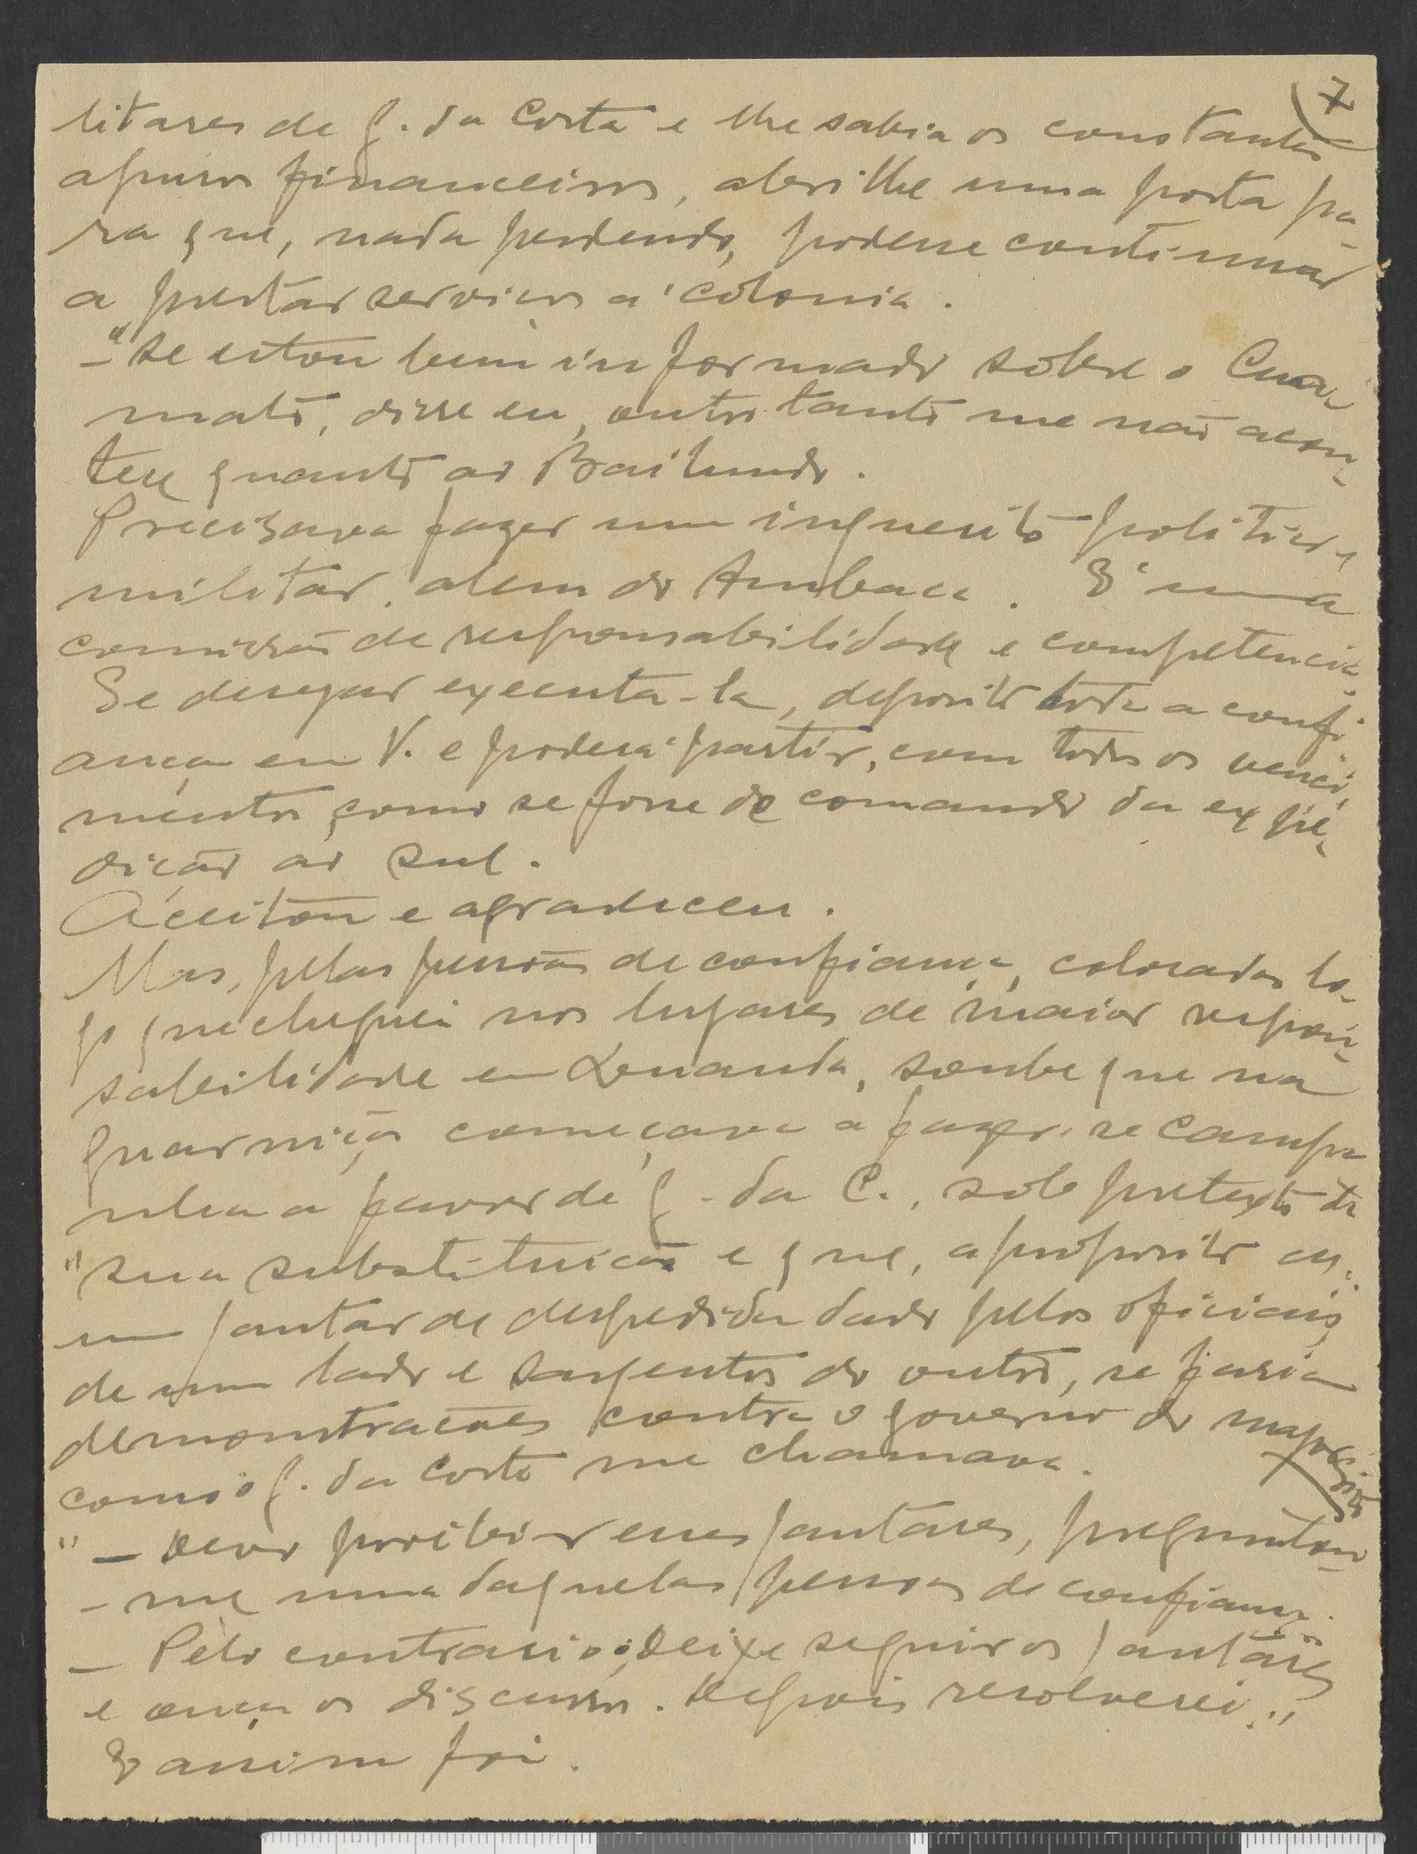 7
litares de G. da Costa e lhe sabia os constantes
apuros financeiros, abri lhe uma porta pa-
ra que, nada perdendo, podesse continuar
a prestar serviços a' colonia.
- "Se estou bem informado sobre o Cua-
mato, disse eu, outro tanto me não acon-
tece quanto ao Bailundo.
Precisava fazer um inquerito politico e
militar, alem do Ambaca. E' uma
comissão de responsabilidade e competencia.
Se desejar executa-la, deposito toda a confi-
ança em V. e poderá partir, com todos os venci-
mentos como se fosse do comando da expe-
dição ao sul.
Aceitou e agradeceu.
Mas, pelas pessoas de confiança, colocadas lo-
go que cheguei nos lugares de maior respon-
sabilidade em Loanda, soube que na
guarnição começava a fazer-se campa
nha a favor de G. da C., sob pretexto da
"sua substituição e que, a proposito de
um jantar de despedida dado pelos oficiais,
de um lado e sargentos do outro, se faria
demonstrações contra o governo do major
como o G. da Costa me chamava.
" - Devo proibir esses jantares, preguntou-
- me uma daquelas pessoas de confiança.
- Pelo contrario; deixe seguir os jantares
e ouça os discursos. Depois resolverei."
E assim foi.